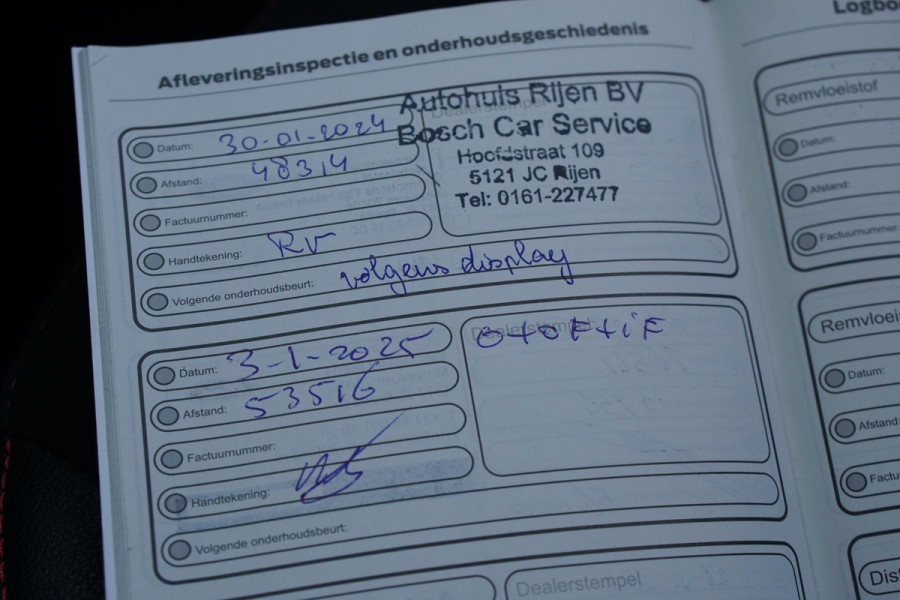 Afleveringsinspectie en onderhoudsgeschiedenis
Datum: 30-01-2024
Afstand: 48314
Factuurnummer:
Handtekening: RV
Volgende onderhoudsbeurt: volgens display
Dealerstempel
Autohuis Rijen BV
Bosch Car Service
Hoofdstraat 109
5121 JC Rijen
Tel: 0161-227477
Datum: 3-1-2025
Afstand: 53516
Factuurnummer:
Handtekening:
Volgende onderhoudsbeurt:
Dealerstempel
Dealerstempel
Logbo
Remvloeistof
Datum:
Afstand:
Factuurnummer:
Remvloei
Datum:
Afstand:
Factu
Dist